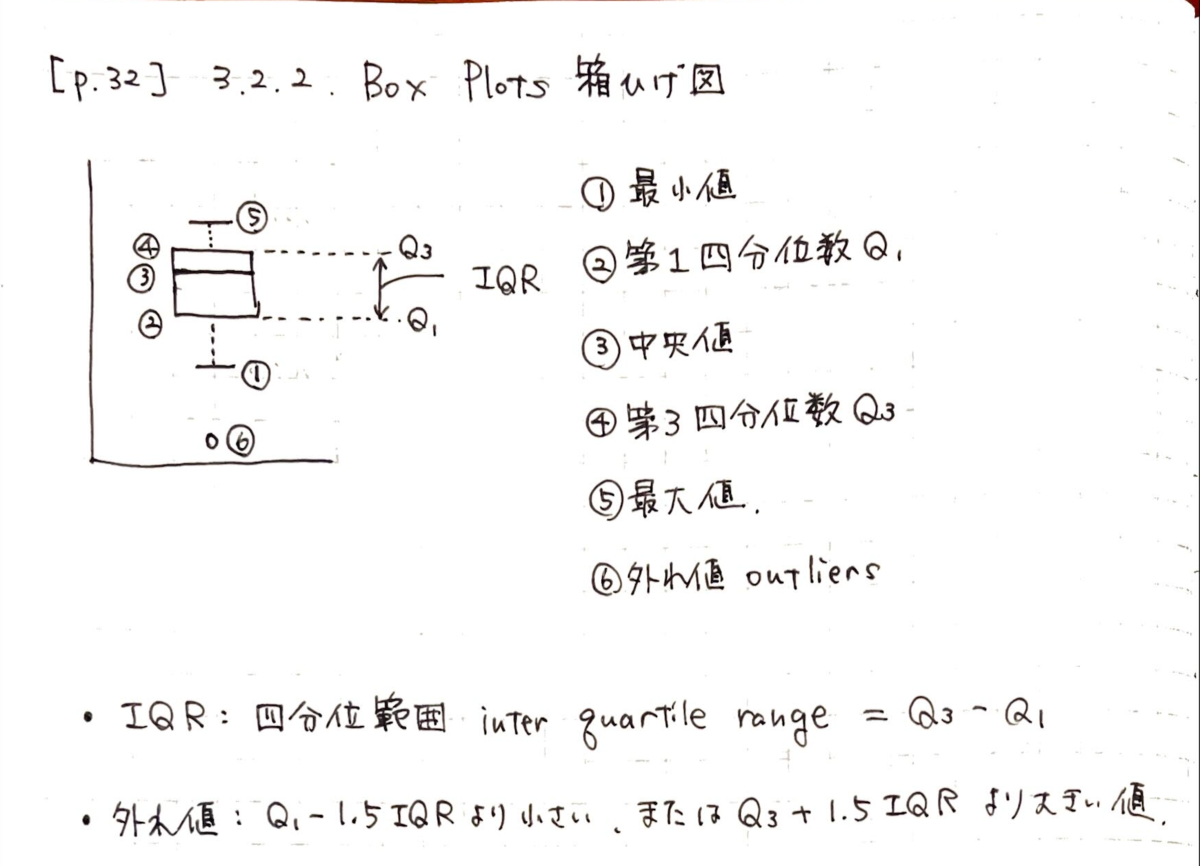 [p.32] 3.2.2. Box Plots 箱ひげ図
① 最小値
② 第1四分位数 Q₁
③ 中央値
④ 第3四分位数 Q3
⑤ 最大値.
⑥ 外れ値 outliers
⑤
④
③
②
①
⑥
Q3
IQR
Q₁
• IQR: 四分位範囲 inter quartile range = Q3 - Q₁
• 外れ値: Q₁-1.5IQRより小さい、またはQ3+1.5IQRより大きい値.